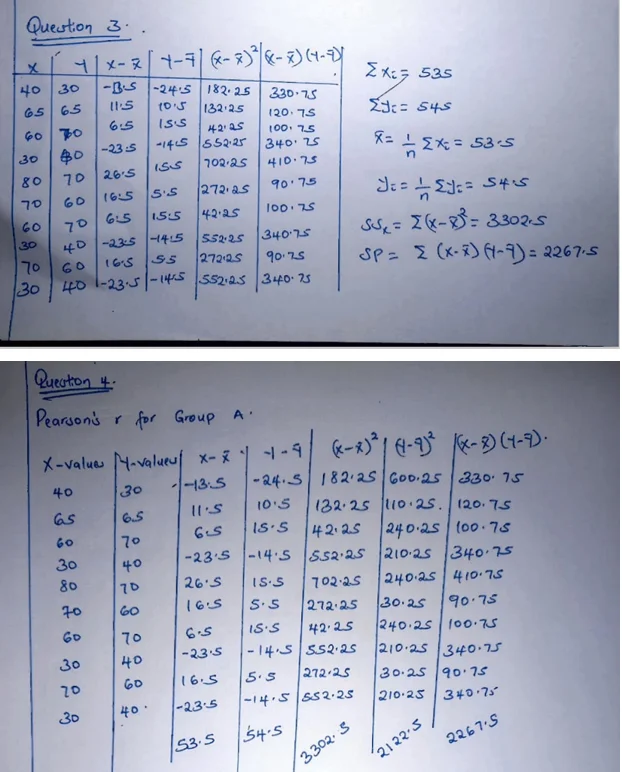 Question 3.
X Y X-x̄ Y-ȳ (X-x̄)² (X-x̄)(Y-ȳ)
40 30 -13.5 -24.5 182.25 330.75
65 65 11.5 10.5 132.25 120.75
60 70 6.5 15.5 42.25 100.75
30 40 -23.5 -14.5 552.25 340.75
80 70 26.5 15.5 702.25 410.75
70 60 16.5 5.5 272.25 90.75
60 70 6.5 15.5 42.25 100.75
30 40 -23.5 -14.5 552.25 340.75
70 60 16.5 5.5 272.25 90.75
30 40 -23.5 -14.5 552.25 340.75
Σxᵢ = 535
Σyᵢ = 545
x̄ = 1/n Σxᵢ = 53.5
yᵢ = 1/n Σyᵢ = 54.5
SSₓ = Σ(x-x̄)² = 3302.5
SP = Σ (x-x̄)(Y-ȳ) = 2267.5
Question 4.
Pearson's r for Group A.
X-values Y-values X-x̄ Y-ȳ (X-x̄)² (Y-ȳ)² (X-x̄)(Y-ȳ).
40 30 -13.5 -24.5 182.25 600.25 330.75
65 65 11.5 10.5 132.25 110.25. 120.75
60 70 6.5 15.5 42.25 240.25 100.75
30 40 -23.5 -14.5 552.25 210.25 340.75
80 70 26.5 15.5 702.25 240.25 410.75
70 60 16.5 5.5 272.25 30.25 90.75
60 70 6.5 15.5 42.25 240.25 100.75
30 40 -23.5 -14.5 552.25 210.25 340.75
70 60 16.5 5.5 272.25 30.25 90.75
30 40. -23.5 -14.5 552.25 210.25 340.75
53.5 54.5 3302.5 2122.5 2267.5